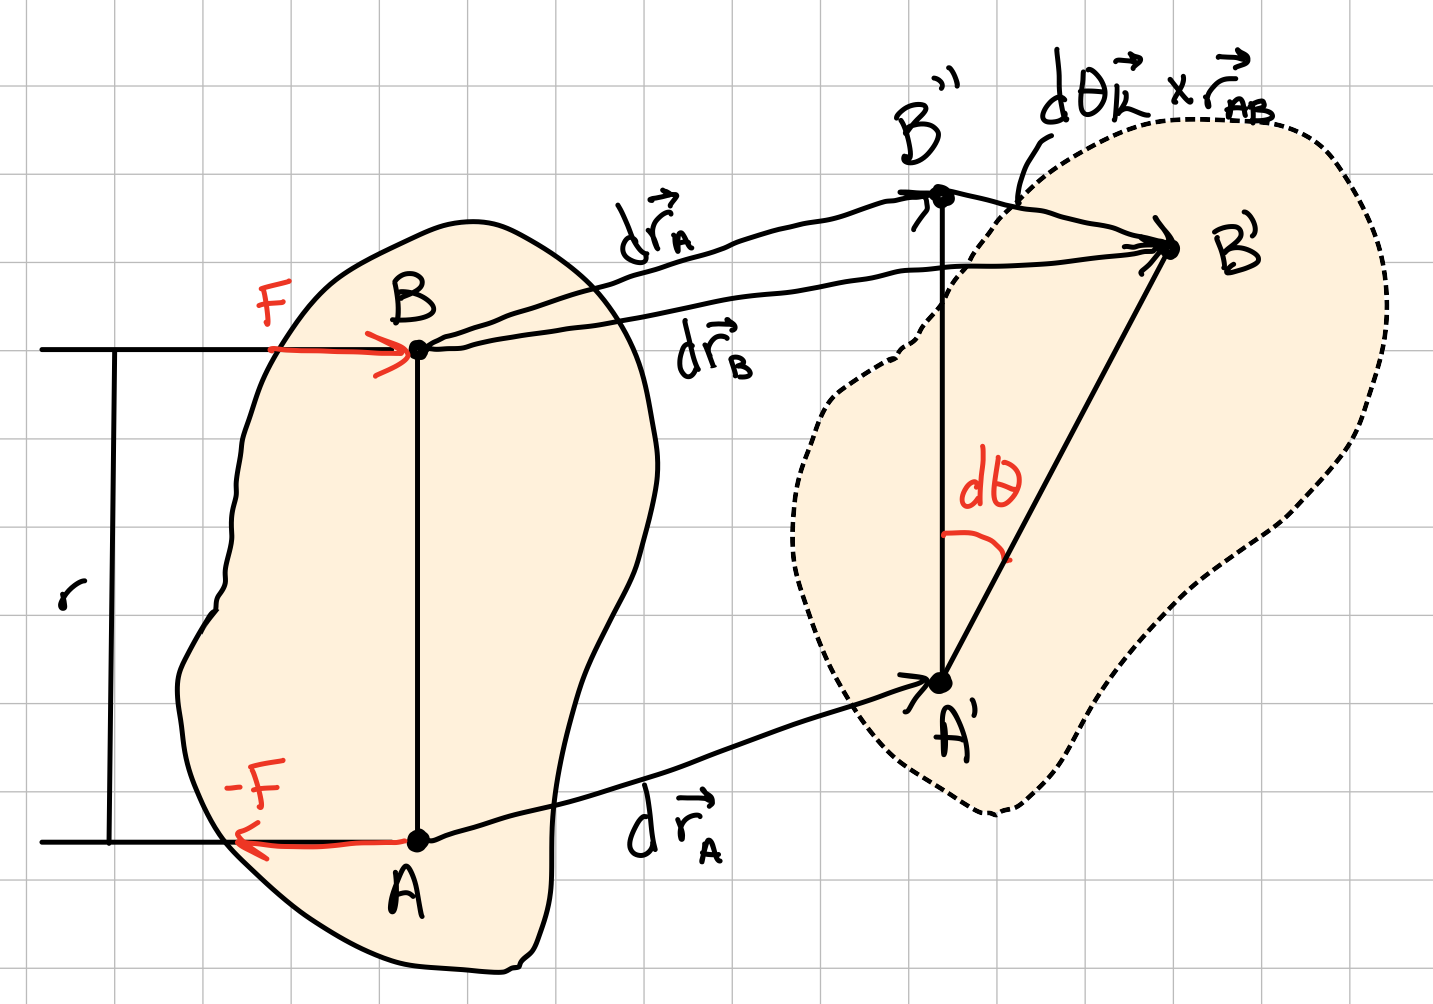 B''
dθk⃗ × r⃗_AB
dr⃗_A
B'
F
B
dr⃗_B
dθ
r
A'
-F
dr⃗_A
A